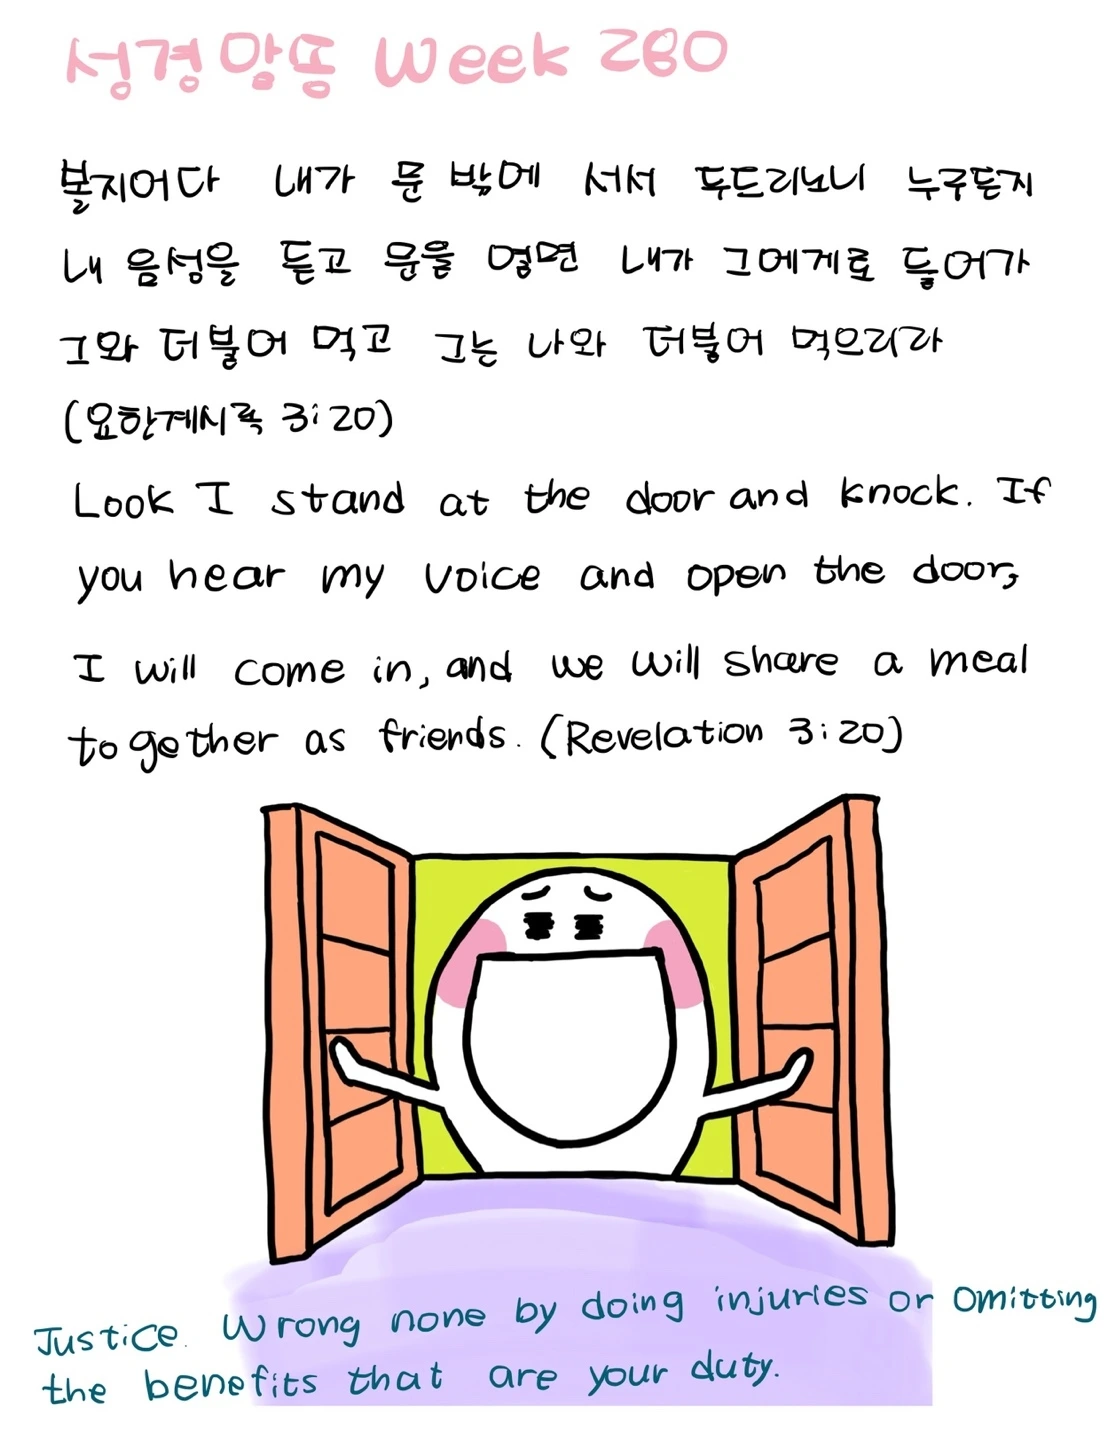 성경말씀 Week 280
볼지어다 내가 문 밖에 서서 두드리노니 누구든지
내 음성을 듣고 문을 열면 내가 그에게로 들어가
그와 더불어 먹고 그는 나와 더불어 먹으리라
(요한계시록 3:20)
Look I stand at the door and knock. If
you hear my voice and open the door,
I will come in, and we will share a meal
together as friends. (Revelation 3:20)
Justice. Wrong none by doing injuries or omitting
the benefits that are your duty.